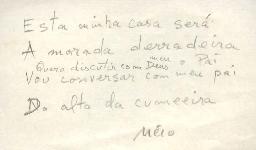 Esta minha casa será
A morada derradeira
Quero discutir com Deus meu o Pai
Vou conversar com meu pai
Do alto da cumeeira